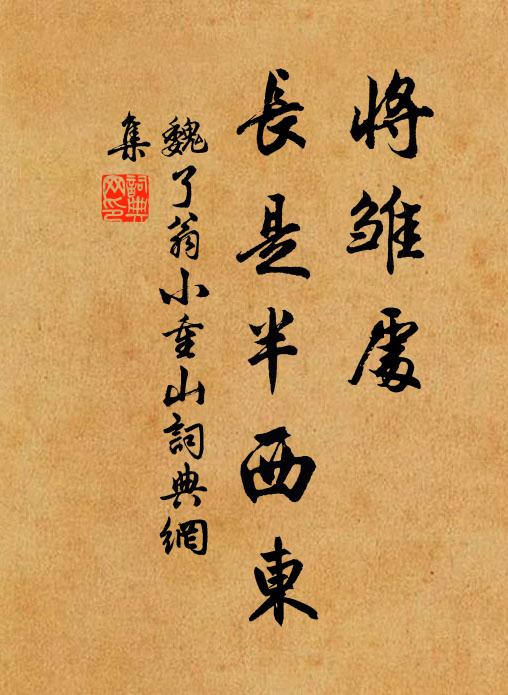 將雛處
長是半西東
魏了翁小重山詞典網
集
詞典
网印